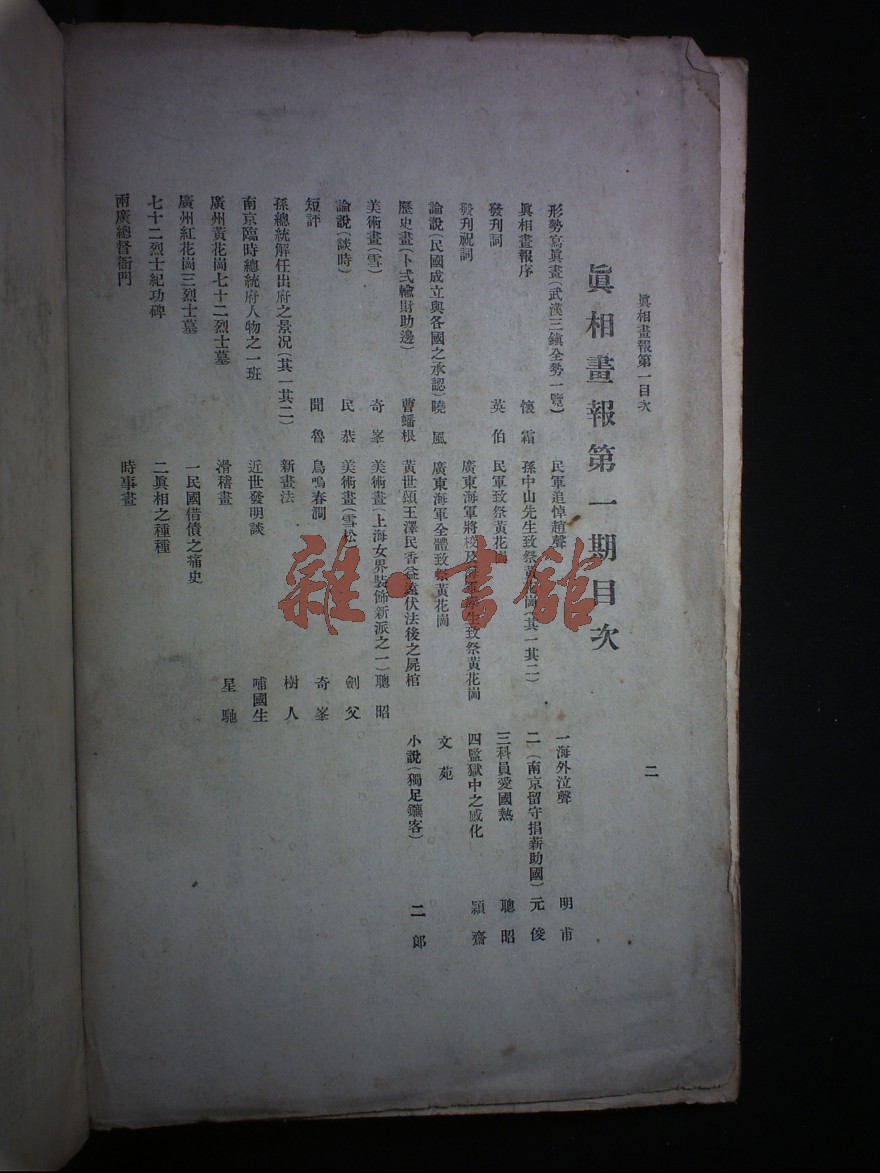 眞相畫報第一目次
二
眞相畫報第一期目次
形勢寫眞畫(武漢三鎮全勢一覽)
眞相畫報序 懷霜
發刊詞 英伯
發刊祝詞
論說(民國成立與各國之承認) 曉風
歷史畫(卜式輸財助邊) 曹蟠根
美術畫(雪) 奇峯
論說(談時) 民恭
短評 聞魯
孫總統解任出府之景况(其一其二)
南京臨時總統府人物之一班
廣州黃花崗七十二烈士墓
廣州紅花崗三烈士墓
七十二烈士紀功碑
兩廣總督衙門
民軍追悼趙聲
孫中山先生致祭黃花崗(其一其二)
民軍致祭黃花崗
廣東海軍將校及海軍學生致祭黃花崗
廣東海軍全體致祭黃花崗
黃世頌王澤民香益遠伏法後之屍棺
美術畫(上海女界裝飾新派之一) 聰昭
美術畫(雪松) 劍父
鳥鳴春澗 奇峯
新畫法 樹人
近世發明談 哺國生
滑稽畫 星馳
一民國借債之痛史
二眞相之種種
時事畫
一海外泣聲 明甫
二(南京留守捐薪助國) 元俊
三科員愛國熱 聰昭
四監獄中之感化 潁齋
文苑
小說(獨足鑲客) 二郎
雜·書館